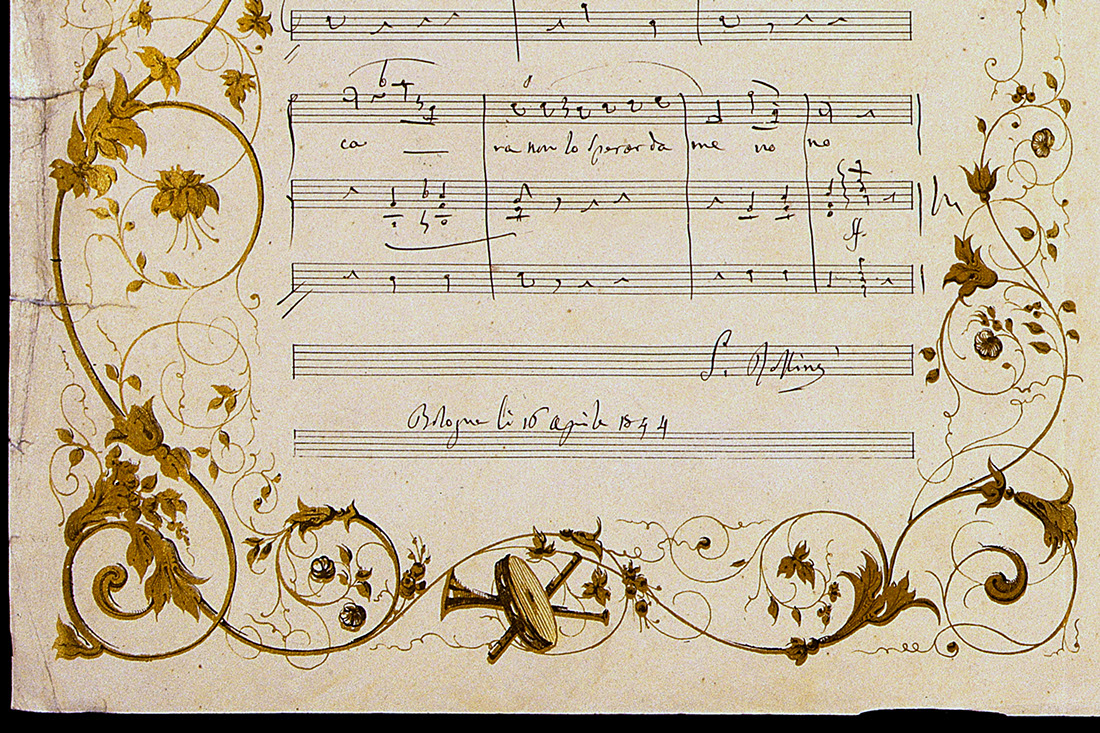 ca ra non lo sperar da me no no
ff
G. Rossini
Bologna li 16 aprile 1854